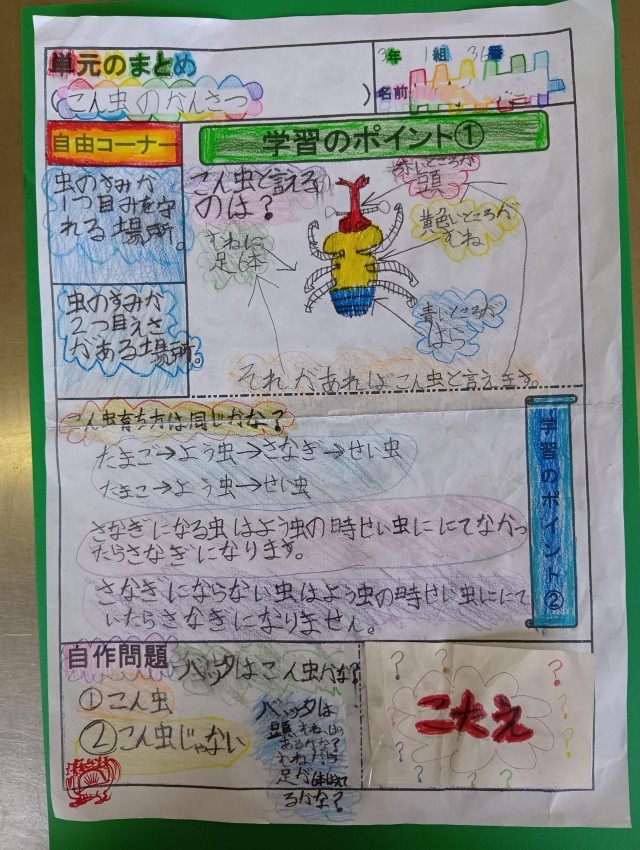 単元のまとめ
(こん虫のかんさつ)
3年 1組 36番
名前
自由コーナー
虫のすみか
1つ目みを守
れる場所。
虫のすみか
2つ目えさ
がある場所。
学習のポイント①
こん虫と言える
のは?
赤いところが
頭
黄色いところが
むね
むねに
足6本
青いところが
はら
それがあればこん虫と言えます。
学習のポイント②
こん虫育ち方は同じかな?
たまご→よう虫→さなぎ→せい虫
たまご→よう虫→せい虫
さなぎになる虫はよう虫の時せい虫ににてなかっ
たらさなぎになります。
さなぎにならない虫はよう虫の時せい虫ににて
いたらさなぎになりません。
自作問題
バッタはこん虫かな?
①こん虫
②こん虫じゃない
バッタは
頭、むね、はら
あるかな?
むねから
足が6本はえて
るかな?
こたえ